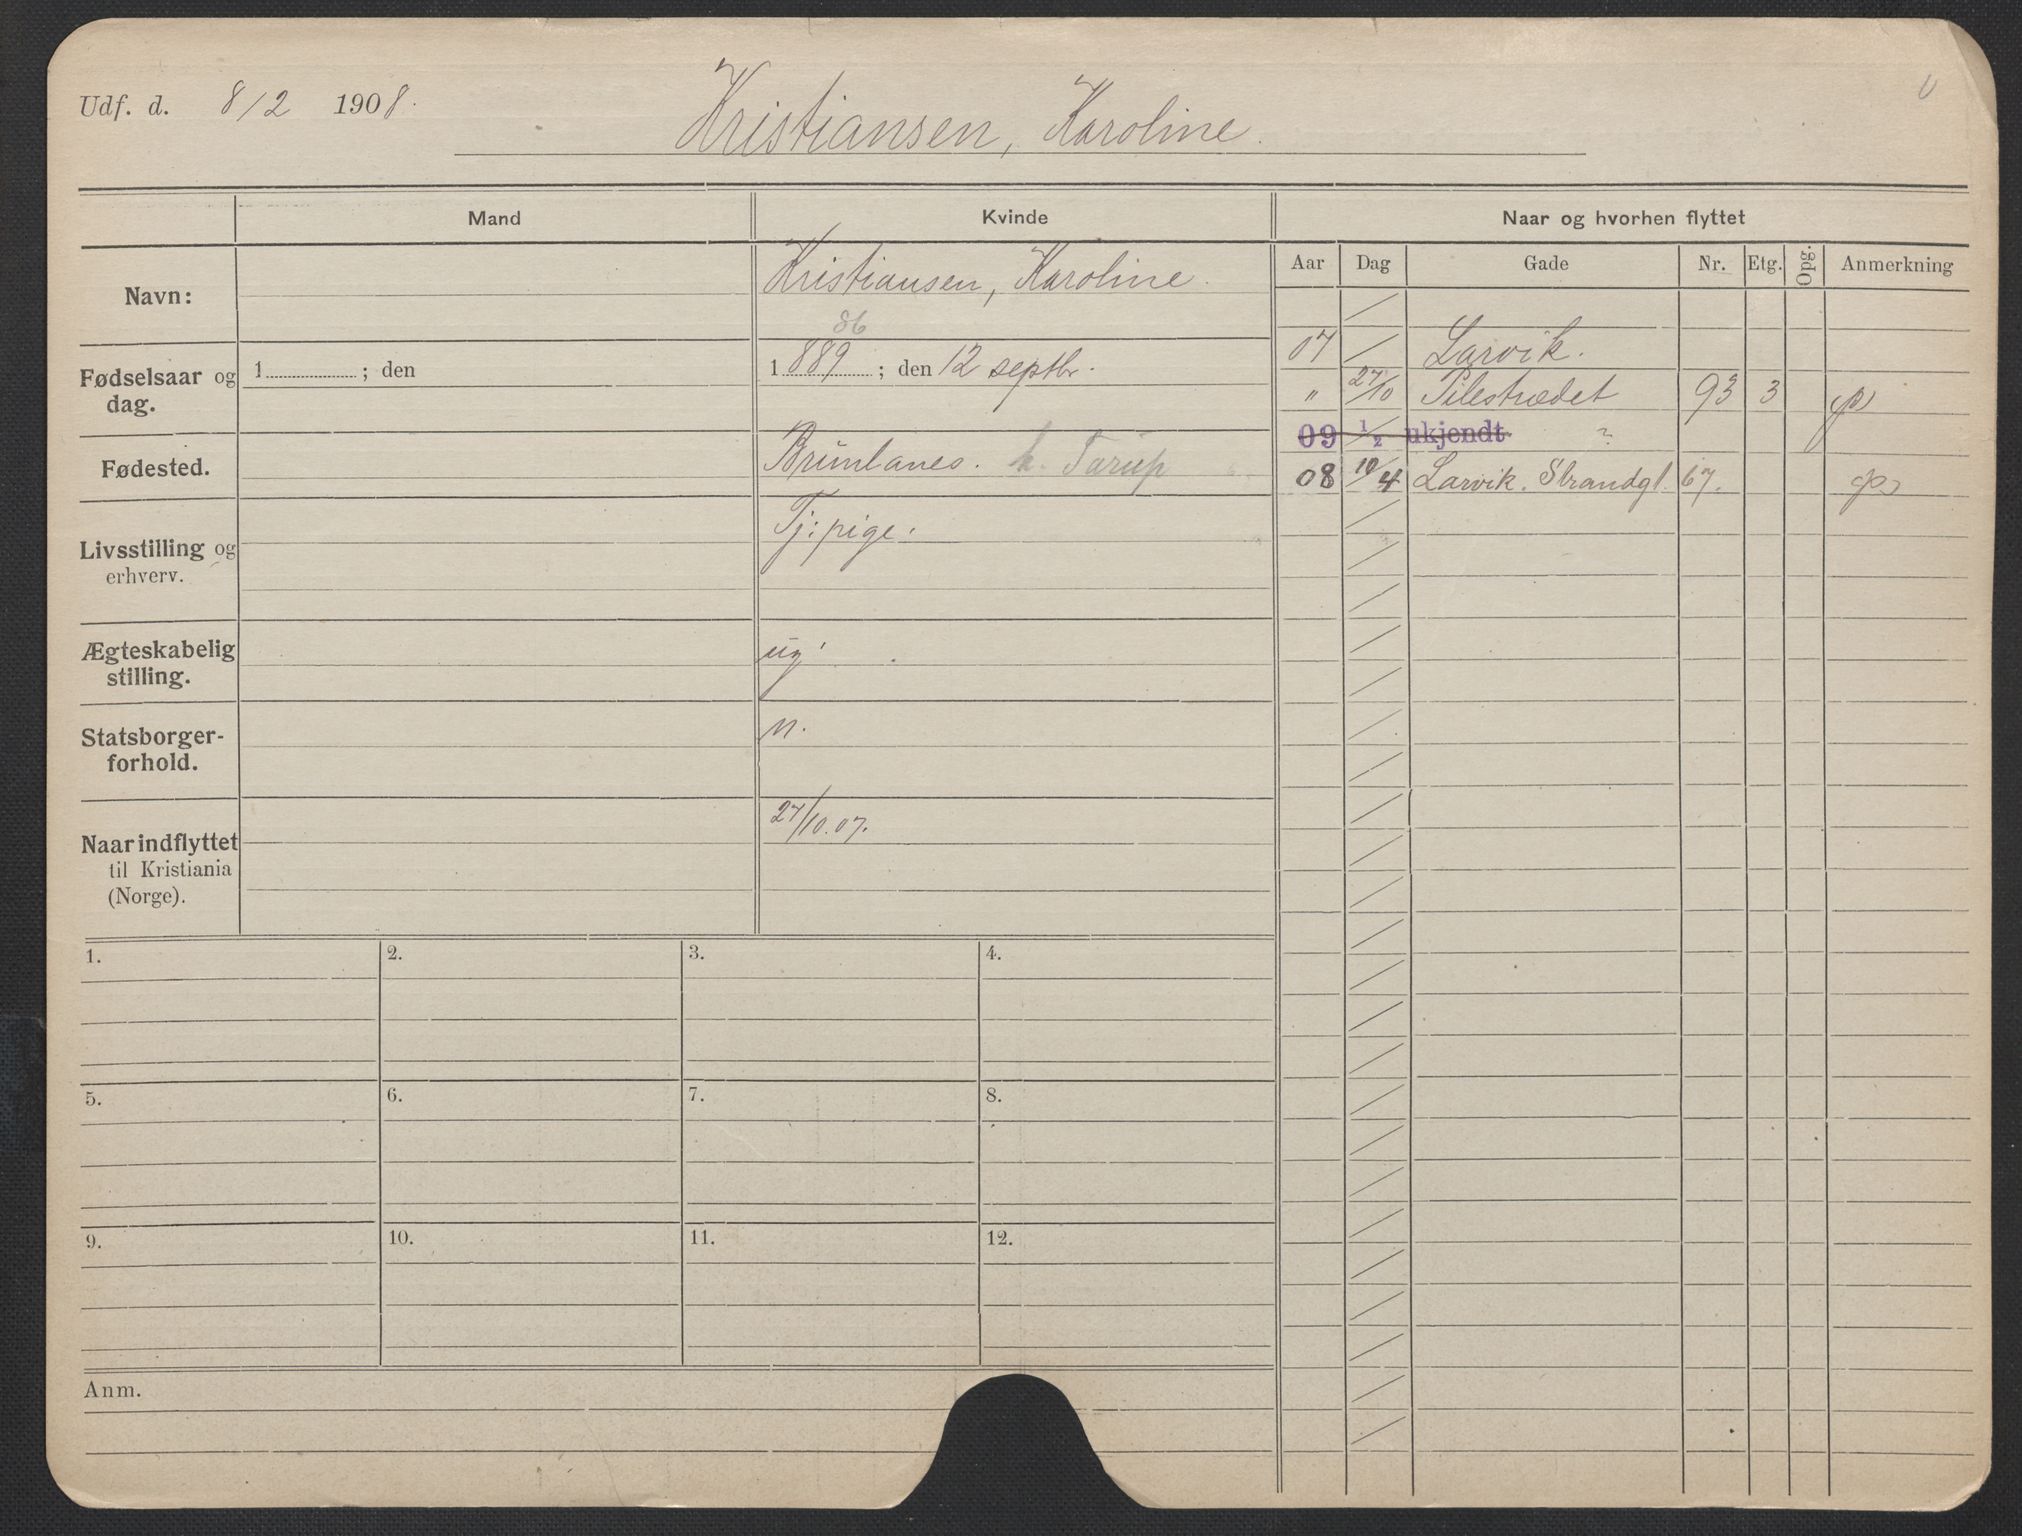 Udf. d. 8/2 1908.
Kristiansen, Karoline.
Mand Kvinde Naar og hvorhen flyttet
Aar Dag Gade Nr. Etg. Opg. Anmerkning
Navn: Kristiansen, Karoline.
86
Fødselsaar og dag. 1 ; den 1 889 ; den 12 septbr.
Fødested. Brunlanes. h. Tarup
Livsstilling og erhverv. Tj: pige.
Ægteskabelig stilling. ug.
Statsborgerforhold. n.
Naar indflyttet til Kristiania (Norge). 27/10.07.
07 / Larvik.
" 27/10 Pilestrædet 93 3 p
09 1/2 ukjendt ?
08 10/4 Larvik. Strandgt. 67. p
1. 2. 3. 4.
5. 6. 7. 8.
9. 10. 11. 12.
Anm.